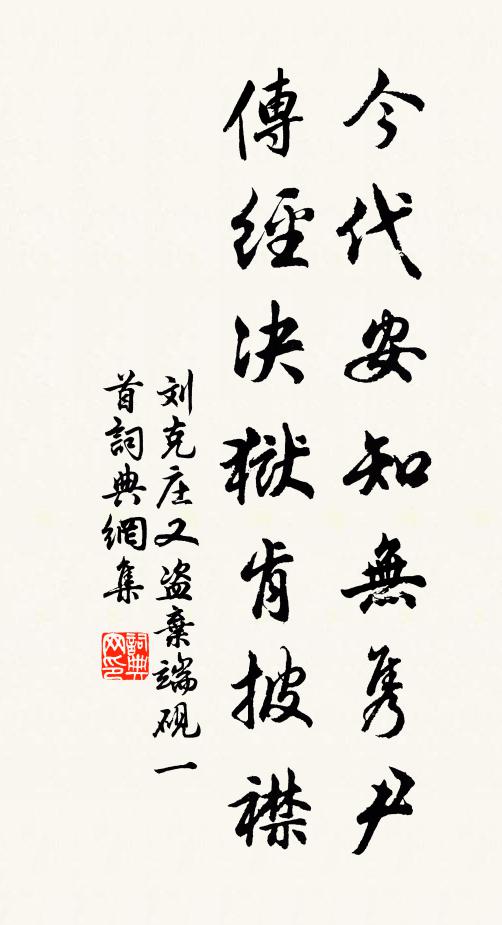 今代安知無雋尹
傳經決獄肯披襟
刘克庄又盗棄端砚一
首詞典網集
詞典网印